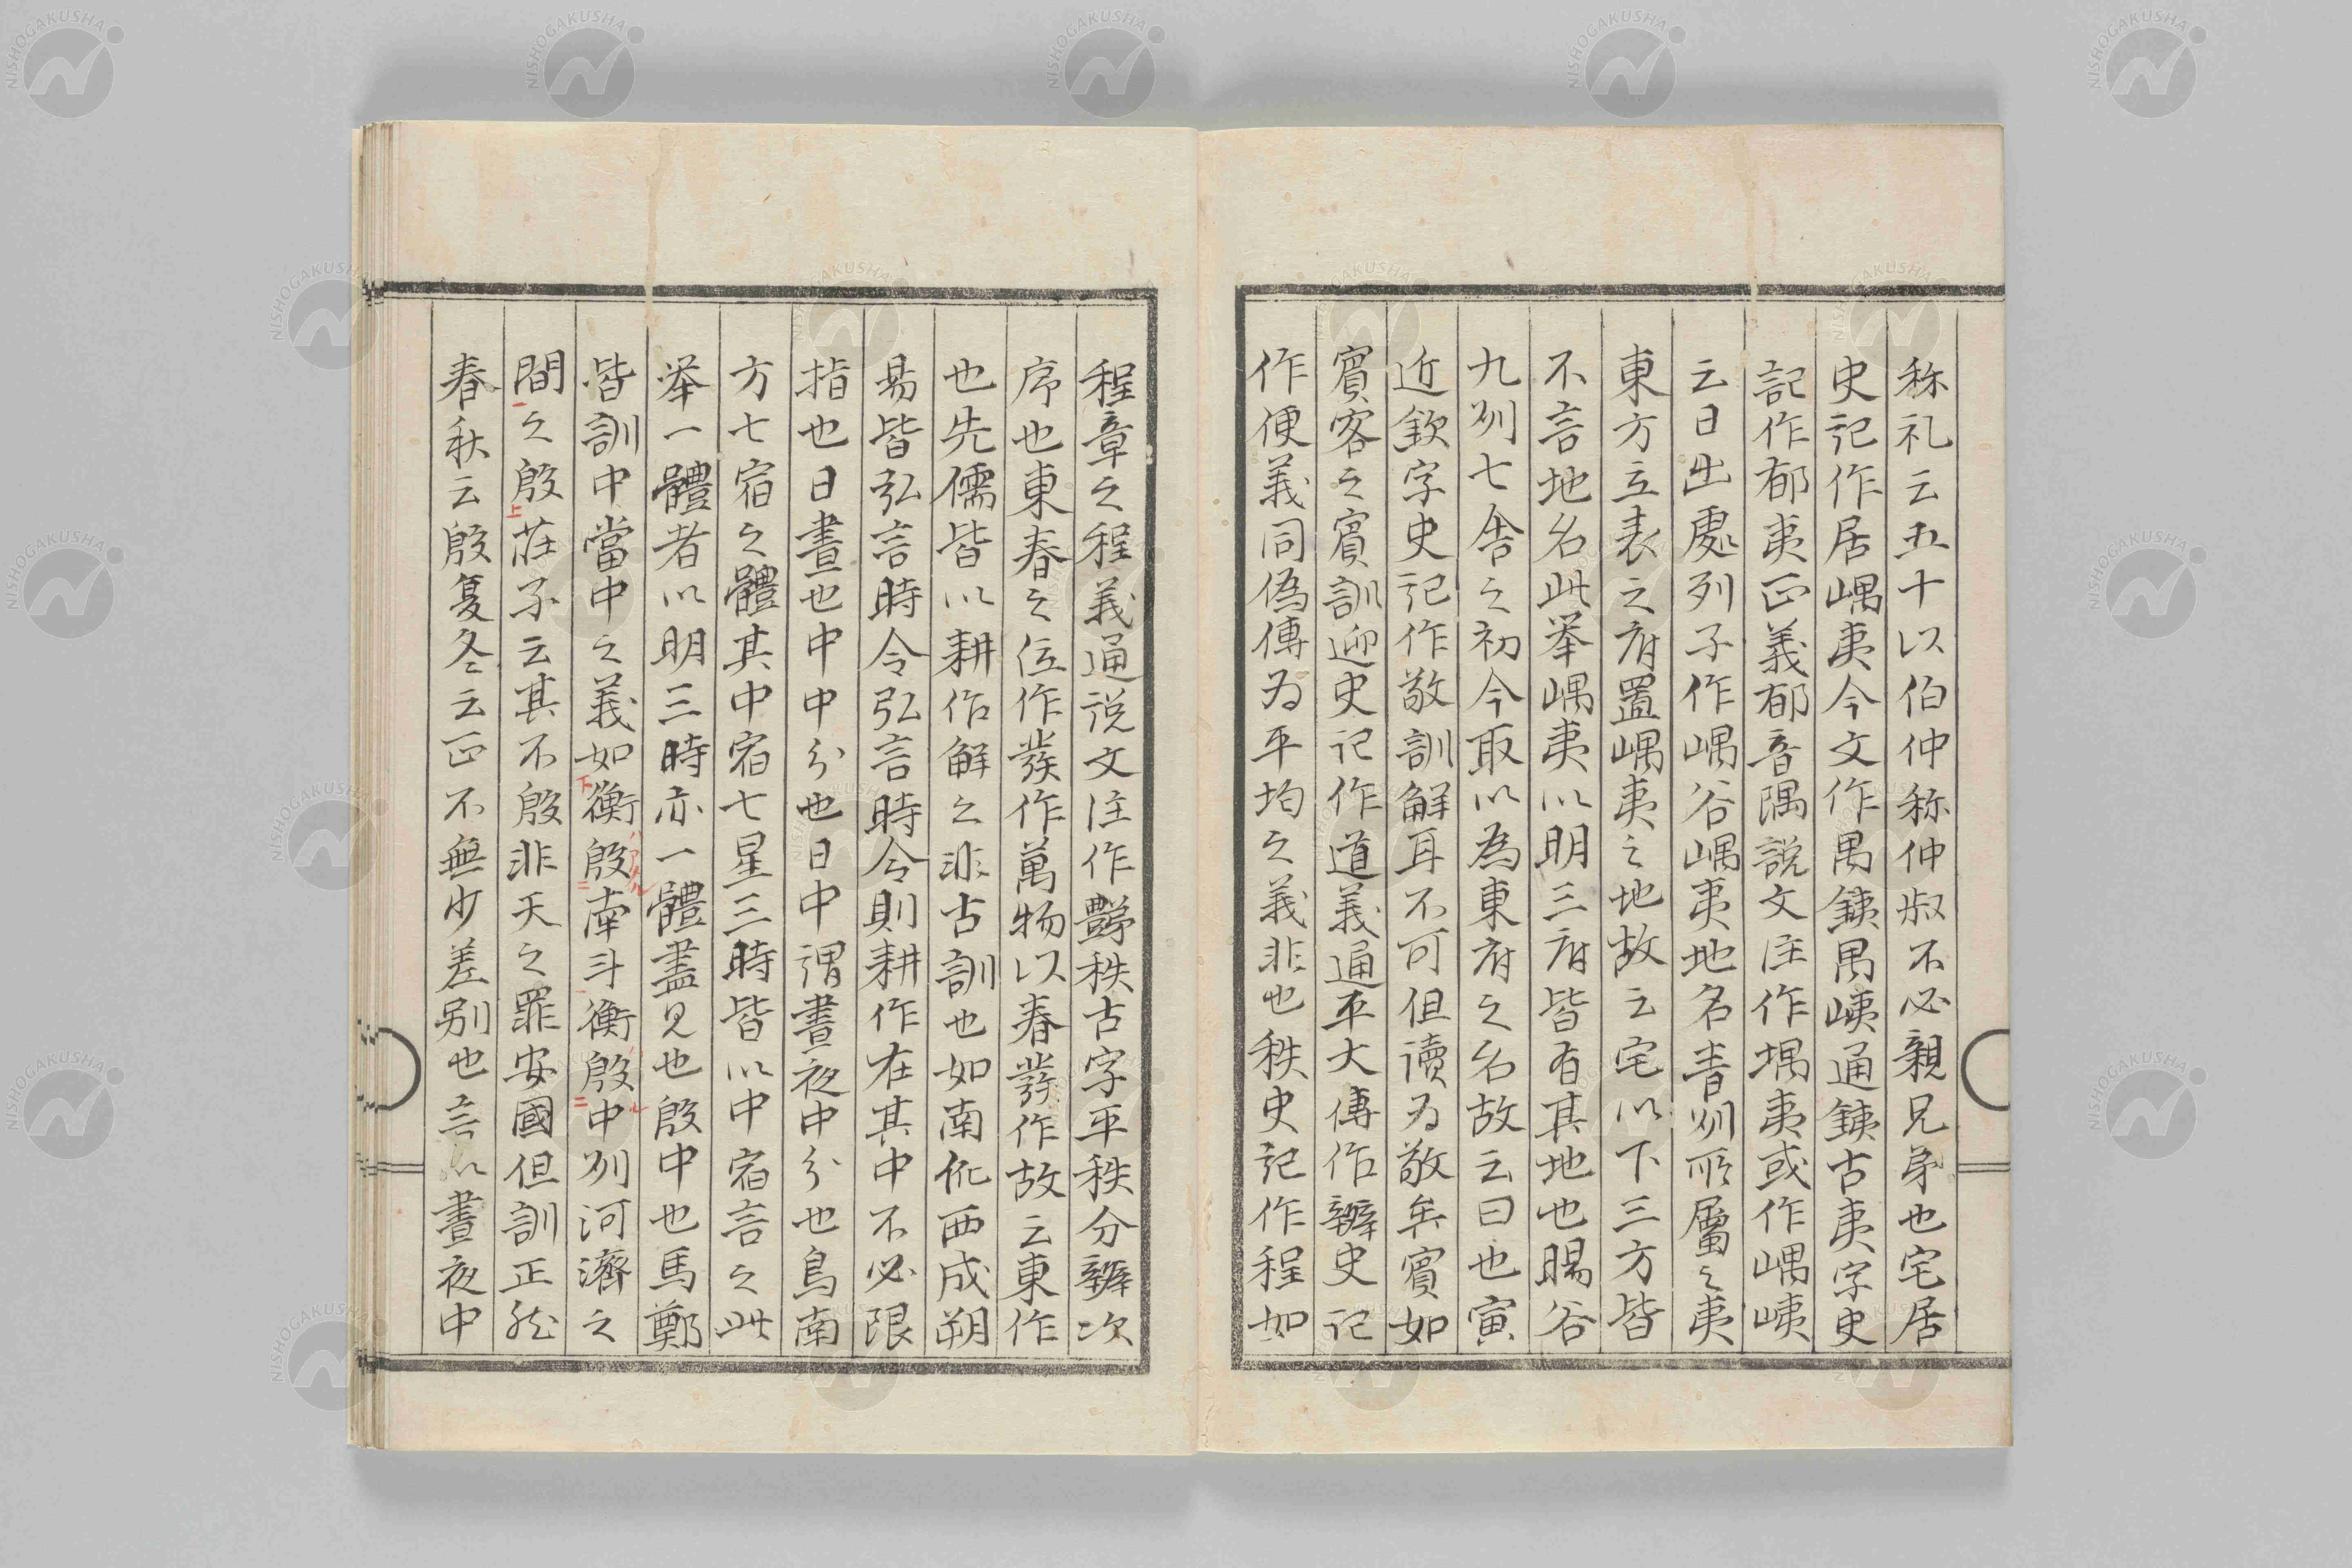 称礼云五十以伯仲称仲叔不必親兄弟也宅居
史記作居嵎夷今文作禺銕禺峓通銕古夷字史
記作郁夷正義郁音隅説文注作堣夷或作嵎峓
云日出處列子作嵎谷嵎夷地名青州所屬之夷
東方立表之府置嵎夷之地故云宅以下三方皆
不言地名此举嵎夷以明三府皆有其地也賜谷
九州七舎之初今取以為東府之名故云曰也寅
近欽字史記作敬訓解耳不可但讀为敬矣賓如
賓客之賓訓迎史記作道義通平大傳作辨史記
作便義同偽傳为平均之義非也秩史記作程如
程章之程義通説文注作豑秩古字平秩分辨次
序也東春之位作發作萬物以春發作故云東作
也先儒皆以耕作解之非古訓也如南佌西成朔
易皆弘言時令弘言時令則耕作在其中不必限
指也日晝也中中分也日中謂晝夜中分也鳥南
方七宿之體其中宿七星三時皆以中宿言之此
举一體者以明三時亦一體盡見也殷中也馬鄭
皆訓中當中之義如衡殷南斗衡殷中州河濟之
間之殷莊子云其不殷非天之罪安國但訓正然
春秋云殷夏冬云正不無少差别也言以晝夜中
NISHOGAKUSHA